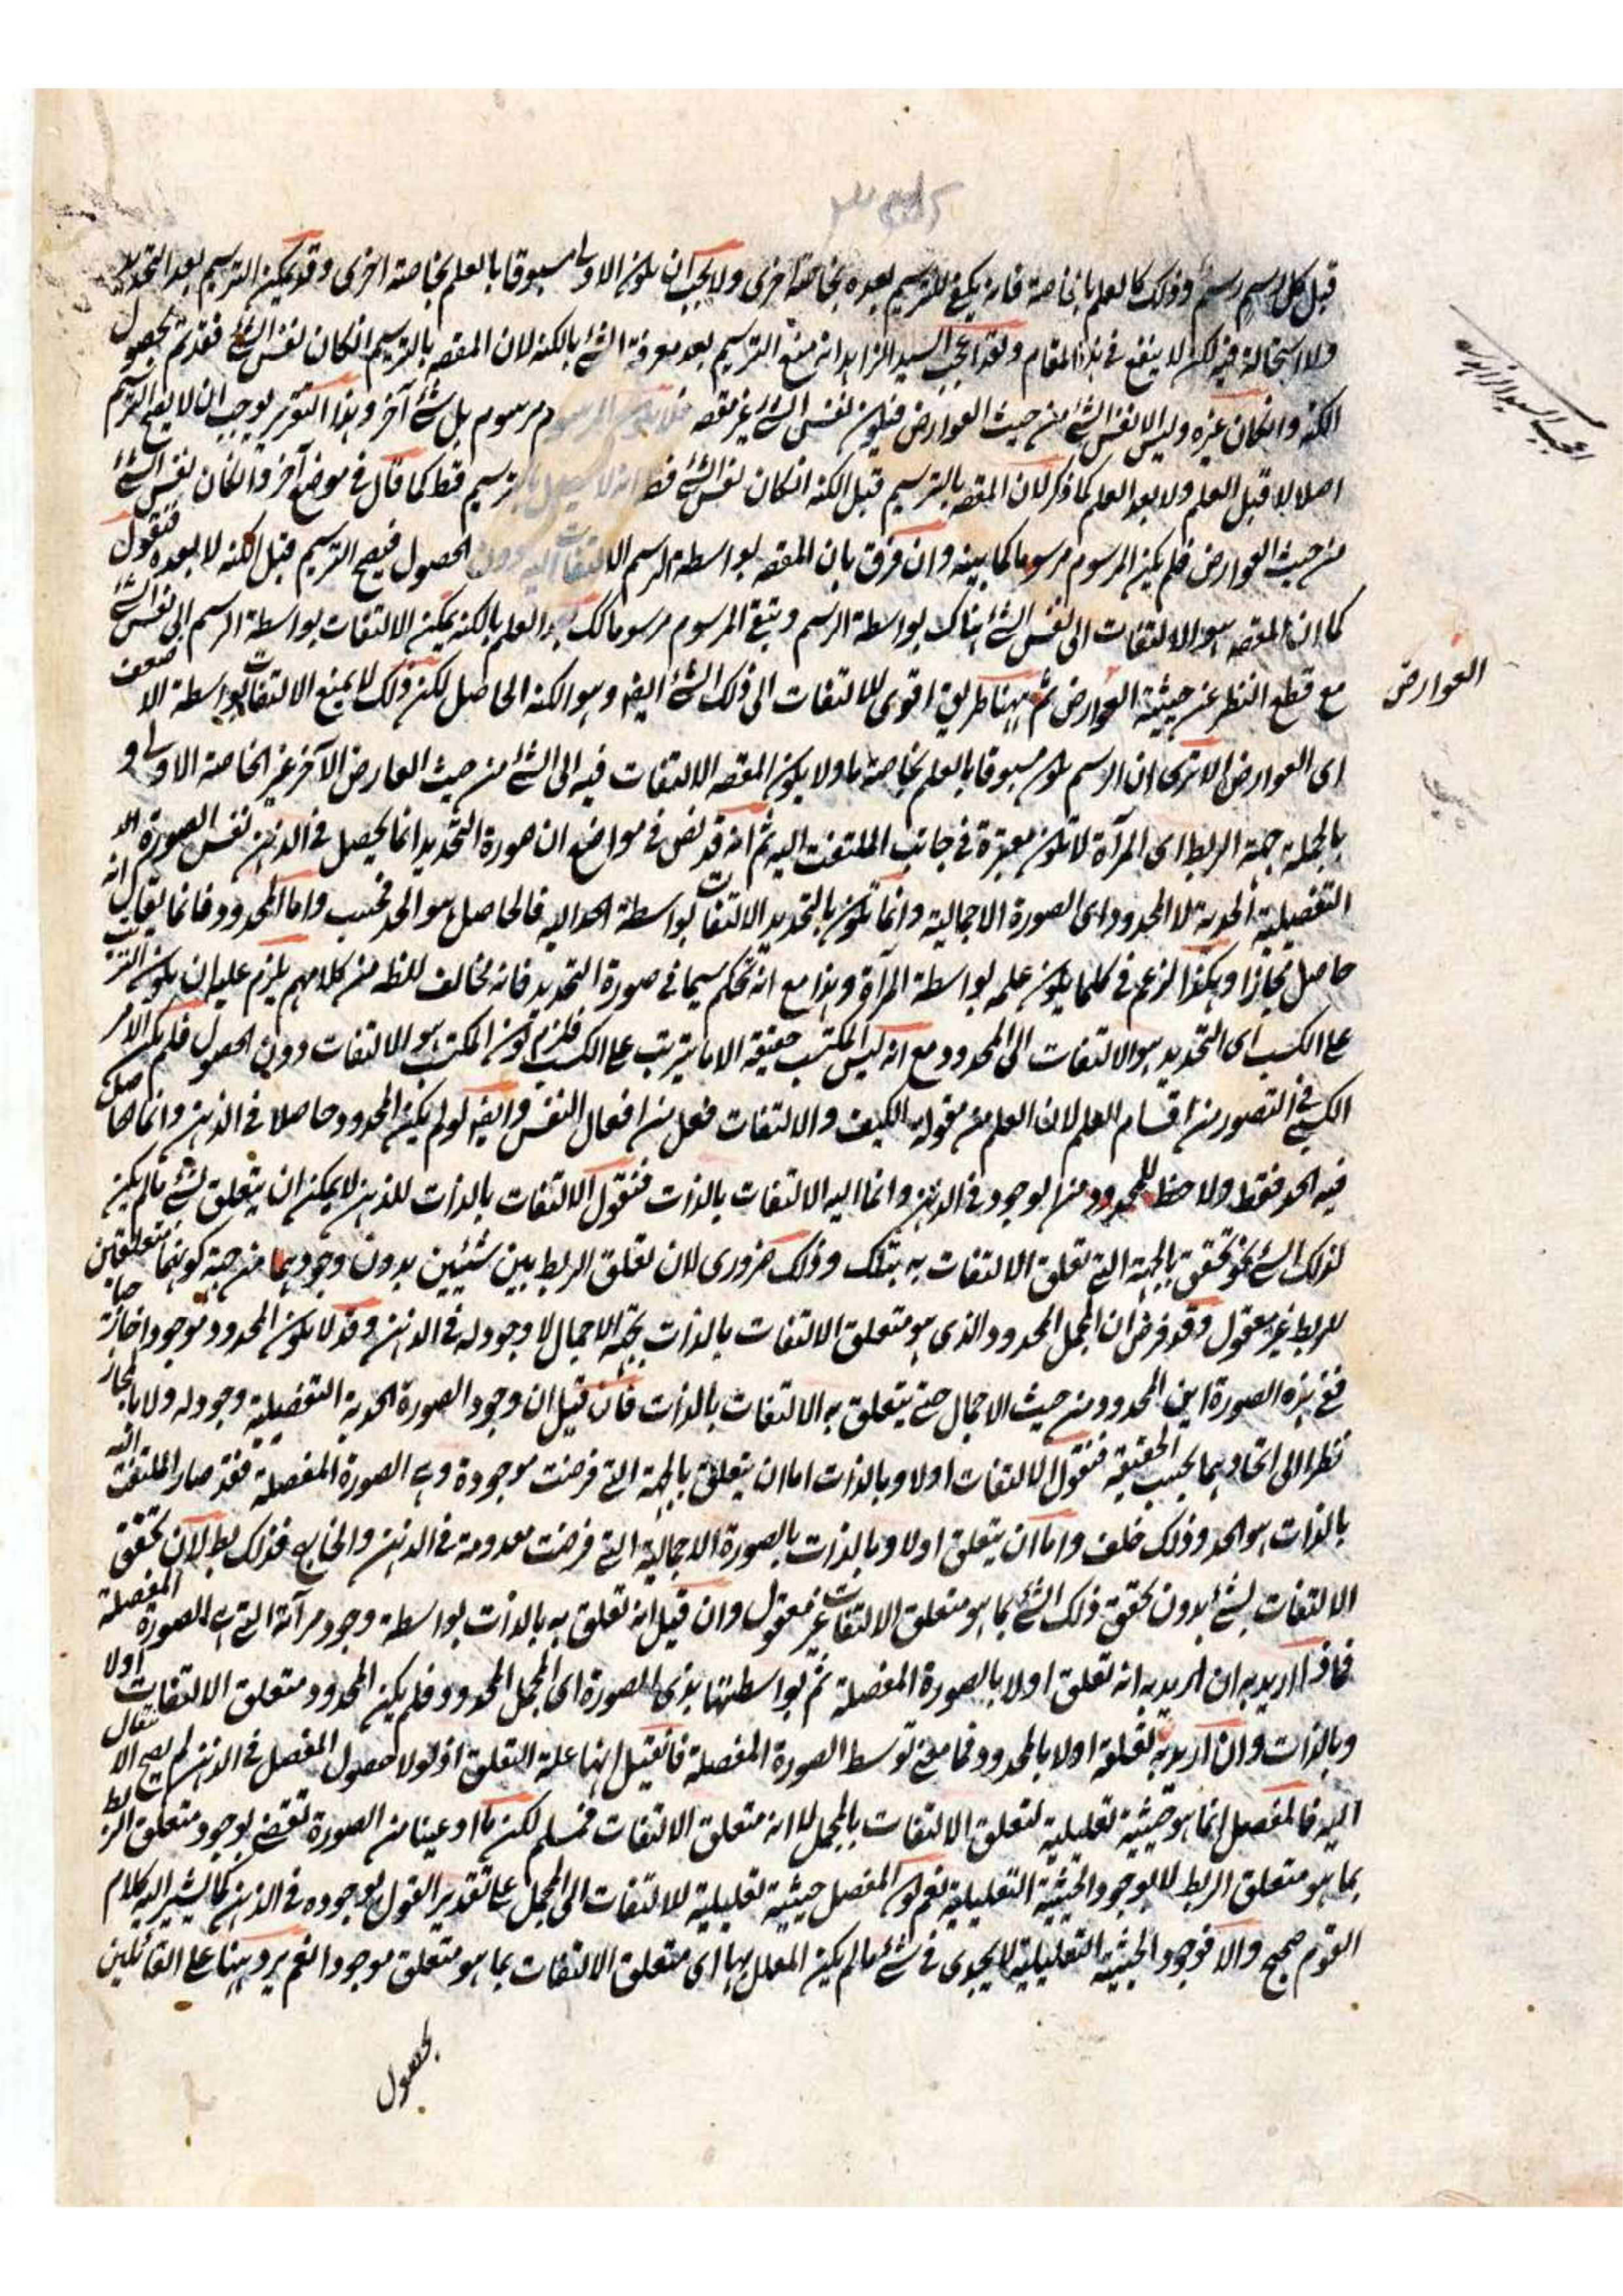 قبل كل رسم رسم وذلك كالعلم بان خاصة فانه يكفى للترسيم بعده بخاصة اخرى ولا يجب ان يكون الاولى مسبوقا بالعلم بخاصة اخرى وقد يمكن الترسيم بعد التحديد
ولا استحالة فيه لكن لا ينفع فى هذا المقام ولقد اعجب السيد الزاهد انه منع الترسيم بعد معرفة الشئ بالكنه لان المقصه بالترسيم انكان نفس الشئ فقد تم بحصول
الكنه وانكان غيره وليس الا نفس الشئ من حيث العوارض فيكون نفس الشئ غير مقصه فلا يكون المرسوم مرسوم بل شئ آخر وهذا التقرير يوجب ان لا يصح الترسيم
اصلا لا قبل العلم ولا بعد العلم كما ذكر لان المقصه بالترسيم قبل الكنه انكان نفس الشئ فقط انه لا يحصل بالترسيم قط كما قال فى موضع آخر وانكان نفس الشئ
من حيث العوارض فلم يكن المرسوم مرسوما كما بينه وان فرق بان المقصه بواسطة الرسم الالتفات اليه دون الحصول فيصح الترسيم قبل الكنه لا بعده فنقول
كما ان المقصه هو الالتفات الى نفس الشئ هناك بواسطة الرسم ويبقى المرسوم مرسوما كك بعد العلم بالكنه يمكن الالتفات بواسطة الرسم الى نفس الشئ
مع قطع النظر عن حيثية العوارض ثم ههنا طريق اقوى للالتفات الى ذلك الشئ ايضه وهو الكنه الحاصل لكن ذلك لا يمنع الالتفات بواسطة الاضعف
اى العوارض الا ترى ان الرسم يكون مسبوقا بالعلم بخاصة ما ولا يكون المقصه الالتفات فيه الى الشئ من حيث العارض الآخر غير الخاصة الاولى و
بالجملة جهة الربط اى المرآة لا تكون معتبرة فى جانب الملتفت اليه ثم انه قد نص فى مواضع ان صورة التحديد انما يحصل فى الذهن نفس الصورة
التفصيلية الحدية لا المحدود اى الصورة الاجمالية وانما تكون بالتحديد الالتفات بواسطة الحد اليه فالحاصل هو الحد فحسب واما المحدود فانما يقال انه
حاصل مجازا وهكذا الزعم فى كلما يكون علمه بواسطة المرآة وهذا مع انه تحكم سيما فى صورة التحديد فانه مخالف للظه من كلامهم يلزم عليه ان يكون الترتب
على الكسب اى التحديد هو الالتفات الى المحدود مع انه ليس المكتسب حقيقة الا ما يترتب على الكسب فلزم كون المكتسب هو الالتفات دون الحصول فلم يكن الامر
الكسبى فى التصور من اقسام العلم لان العلم من مقولة الكيف والالتفات فعل من افعال النفس وايضه لو لم يكن المحدود حاصلا فى الذهن وانما حاصل
فيه الحد فقط ولا حظ للمحدود من الوجود فى الذهن وانما اليه الالتفات بالذات فنقول الالتفات بالذات للذهن لا يمكن ان يتعلق بشئ ما لم يكن
لذلك الشئ نحو تحقق بالجهة التى تعلق الالتفات به بتلك وذلك ضرورى لان تعلق الربط بين شيئين بدون وجودهما من جهة كونهما متعلقين
للربط غير معقول وقد فرض ان المجمل المحدود الذى هو متعلق الالتفات بالذات بجهة الاجمال لا وجود له فى الذهن وقد لا يكون المحدود موجودا خارجا
ففى هذه الصورة اين المحدود من حيث الاجمال حتى يتعلق به الالتفات بالذات فان قيل ان وجود الصورة الحدية التفصيلية وجود له ولا بالمجاز
نظرا الى اتحادهما بحسب الحقيقة فنقول الالتفات اولا وبالذات اما ان يتعلق بالجهة التى فرضت موجودة وهى الصورة المفصلة فقد صار الملتفت اليه
بالذات هو الحد وذلك خلف واما ان يتعلق اولا وبالذات بالصورة الاجمالية التى فرضت معدومة فى الذهن والخارج فذلك بط لان تحقق
الالتفات لشئ بدون تحقق ذلك الشئ بما هو متعلق الالتفات غير معقول وان قيل انه تعلق به بالذات بواسطة وجود مرآته التى هى الصورة المفصلة
فماذا اريد به ان اريد به انه تعلق اولا بالصورة المفصلة ثم بواسطتها بذى الصورة اى المجمل المحدود فلم يكن المحدود متعلق الالتفات اولا
وبالذات وان اريد به تعلقه اولا بالمحدود فما معنى توسط الصورة المفصلة فان قيل انها علة التعلق اذ لولا حصول المفصل فى الذهن لم يصح الانتقال
اليه فالمفصل انما هو حيثية تعليلية لتعلق الالتفات بالمجمل لا انه متعلق الالتفات فمسلم لكن ما ادعينا من الصورة تقتضى وجود متعلق الربط
بما هو متعلق الربط لا لوجود الحيثية التعليلية نعم كون المفصل حيثية تعليلية للالتفات الى المجمل على تقدير القول بوجوده فى الذهن كما يشير اليه كلام
القوم صحيح والا فوجود الحيثية التعليلية لا يجدى فى شئ ما لم يكن المعلل بها اى متعلق الالتفات بما هو متعلق موجودا نعم يرد ههنا على القائلين
بحصول
اعجب السيد الزاهد
العوارض